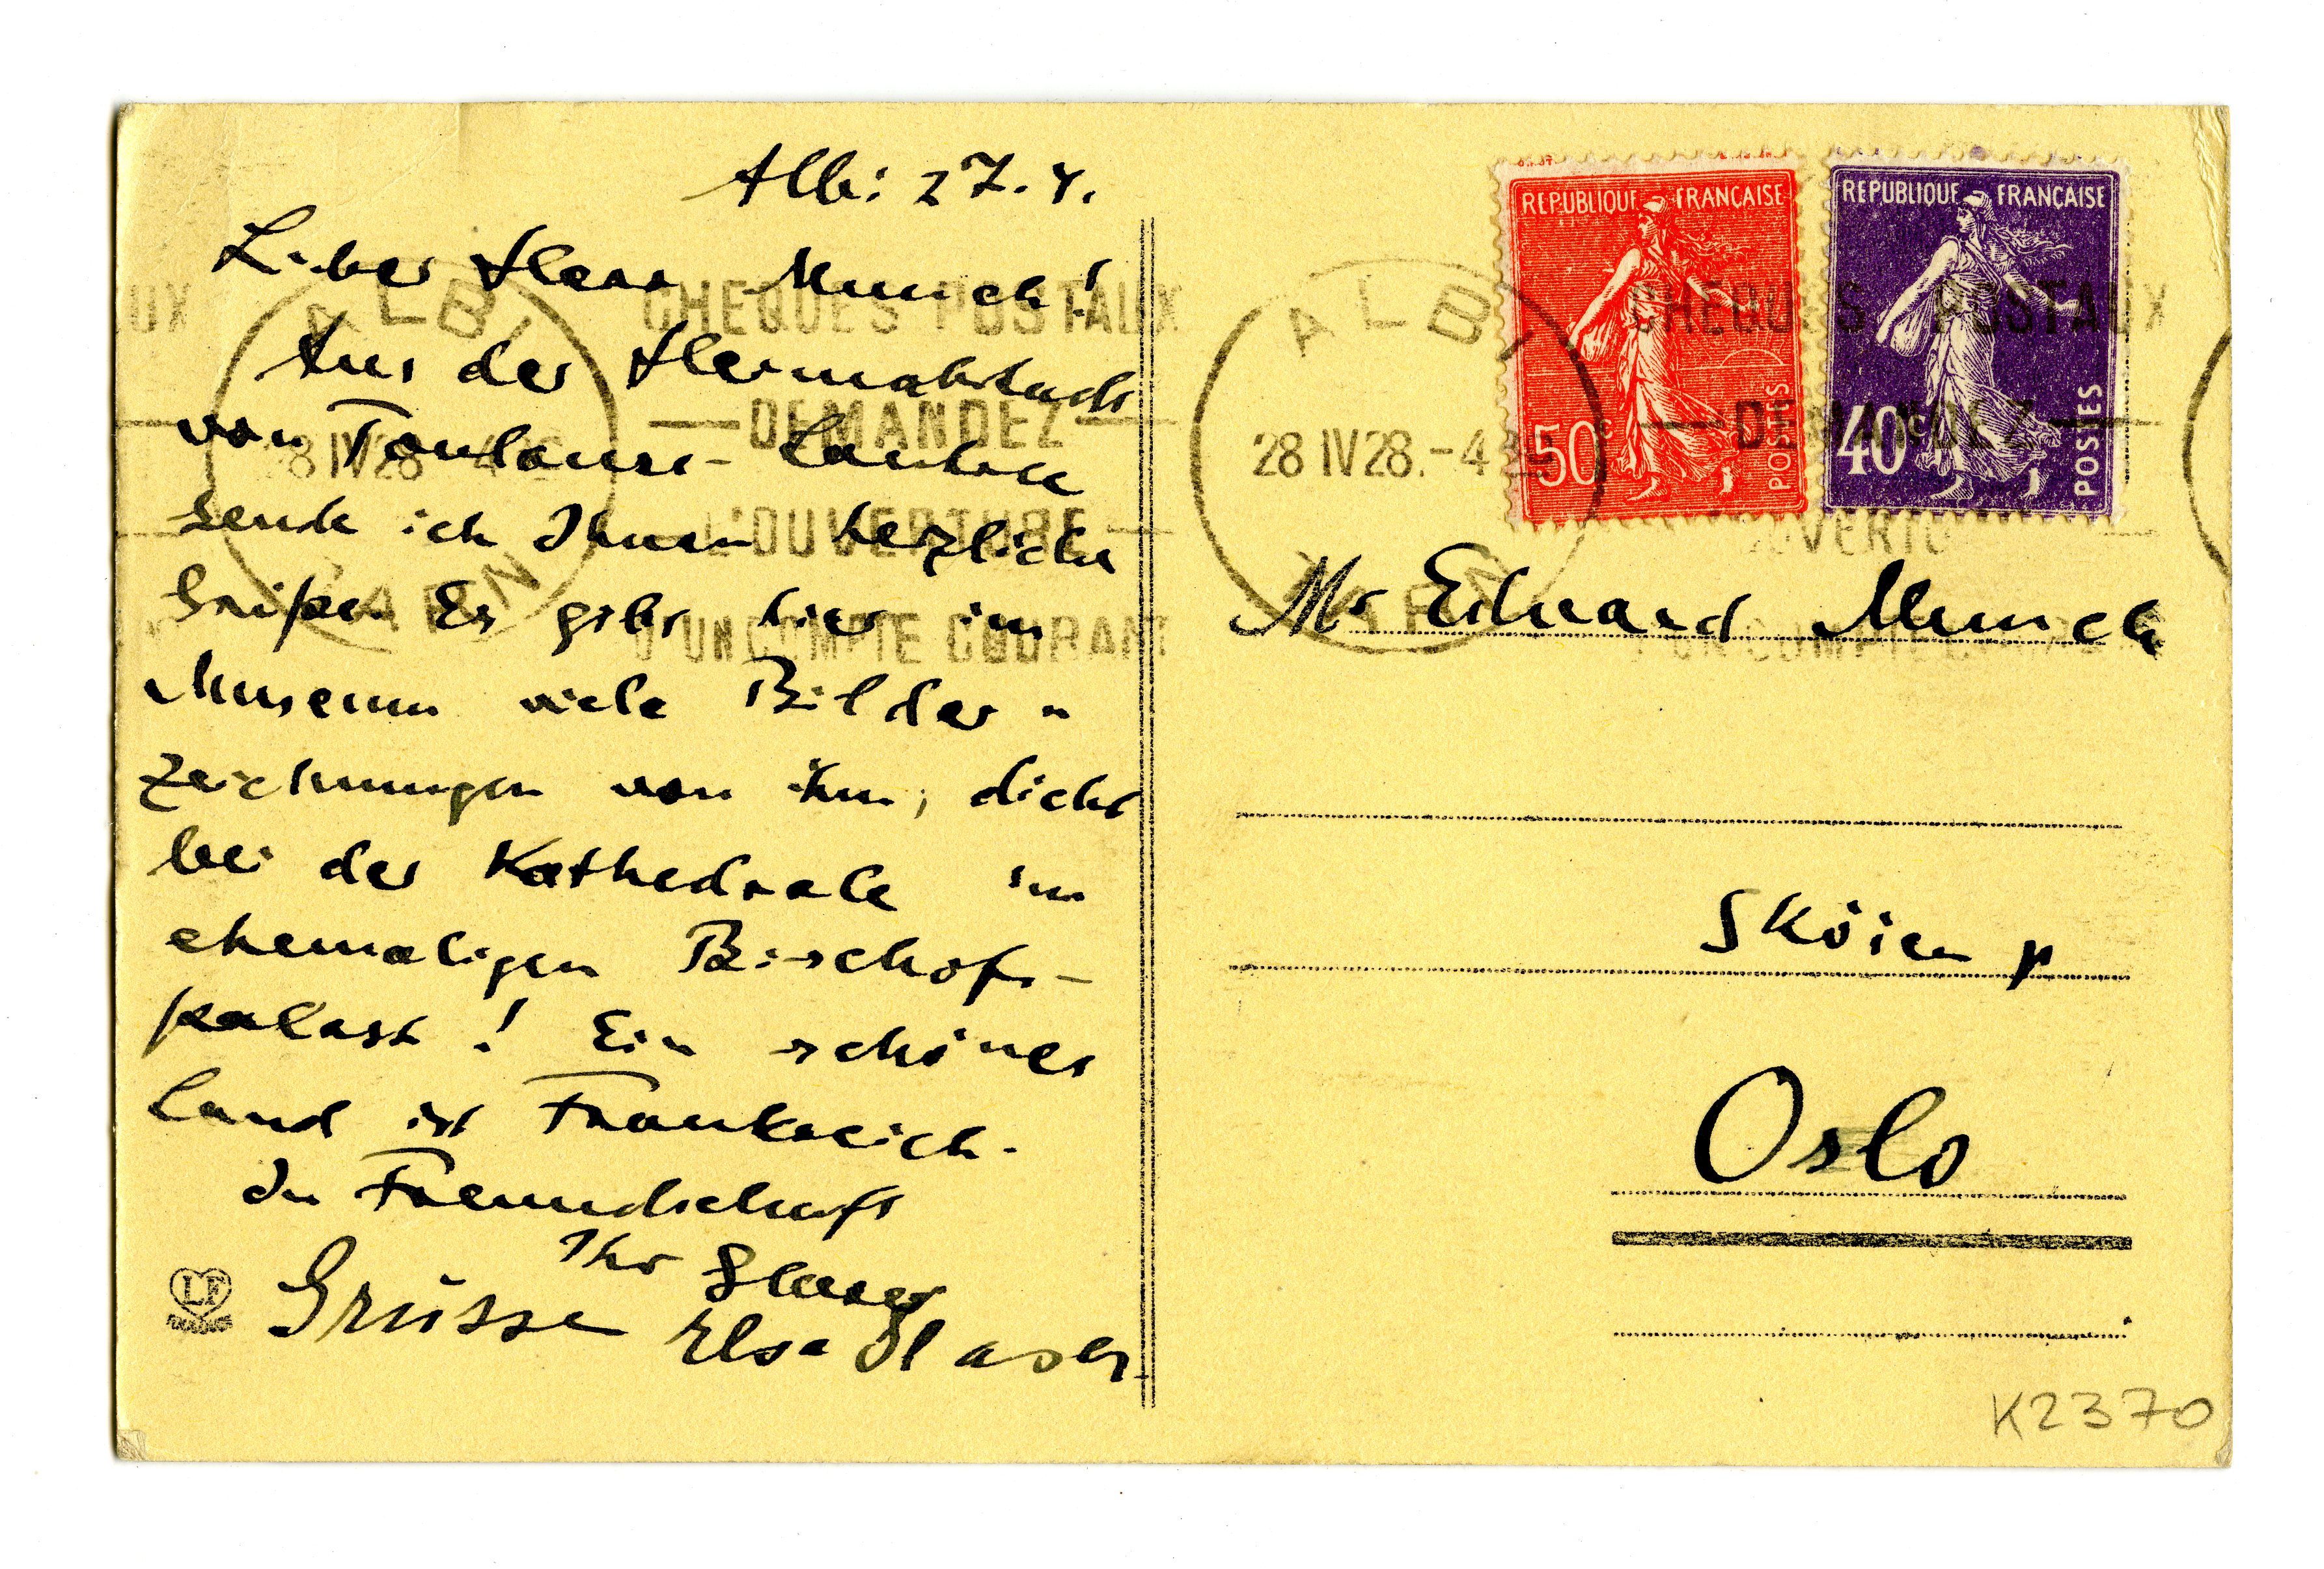 Albi 27.4.
Lieber Herr Munch!
Aus der Heimatstadt
von Toulouse-Lautrec
sende ich Ihnen herzliche
Grüße. Es gibt hier im
Museum viele Bilder u
Zeichnungen von ihm, dicht
bei der Kathedrale im
ehemaligen Bischofs-
palast! Ein schönes
Land ist Frankreich.
In Freundschaft
Ihr Glaser
Grüsse Elsa Glaser.
LF
ALBI
28 IV 28
TARN
CHEQUES POSTAUX
DEMANDEZ
L'OUVERTURE
D'UN COMPTE COURANT
REPUBLIQUE FRANÇAISE
50c
POSTES
REPUBLIQUE FRANÇAISE
40c
POSTES
ALBI
28 IV 28.-4
TARN
CHEQUES POSTAUX
DEMANDEZ
L'OUVERTURE
D'UN COMPTE COURANT
Mr Edvard Munch
Sköien p
Oslo
K2370